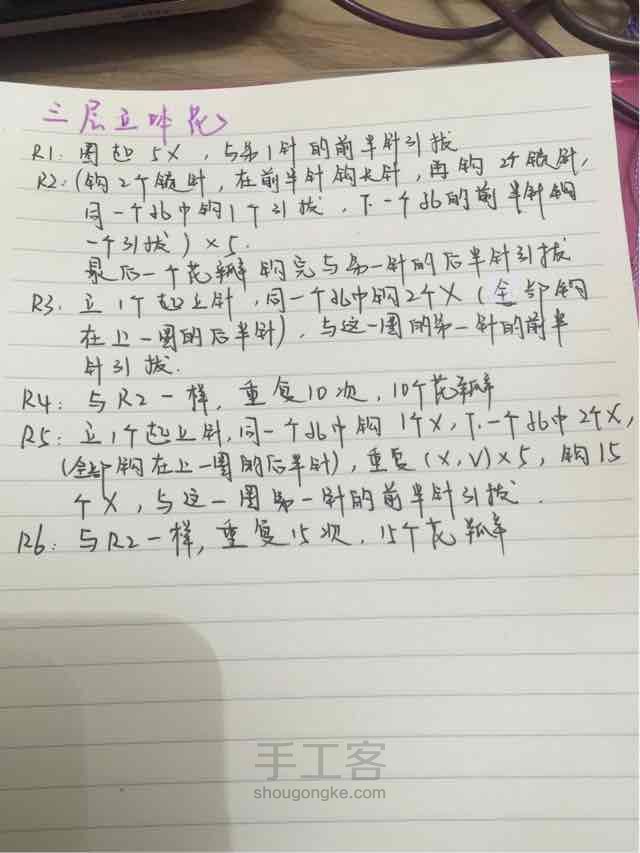 三层立体花
R1: 圈起 5X, 与第1针的前半针引拔
R2: (钩2个锁针, 在前半针钩长针, 再钩2个锁针,
同一个孔中钩1个引拔, 下一个孔的前半针钩
一个引拔) × 5.
最后一个花瓣钩完与第一针的后半针引拔
R3: 立1个起立针, 同一个孔中钩2个X (全部钩
在上一圈的后半针), 与这一圈的第一针的前半
针引拔.
R4: 与R2一样, 重复10次, 10个花瓣
R5: 立1个起立针, 同一个孔中钩1个X, 下一个孔中2个X,
(全部钩在上一圈的后半针), 重复 (X, V) × 5, 钩15
个X, 与这一圈第一针的前半针引拔.
R6: 与R2一样, 重复15次, 15个花瓣
手工客
shougongke.com